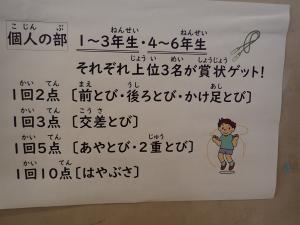 個人の部
1～3年生・4～6年生
それぞれ上位3名が賞状ゲット!
1回2点［前とび・後ろとび・かけ足とび］
1回3点［交差とび］
1回5点［あやとび・2重とび］
1回10点［はやぶさ］